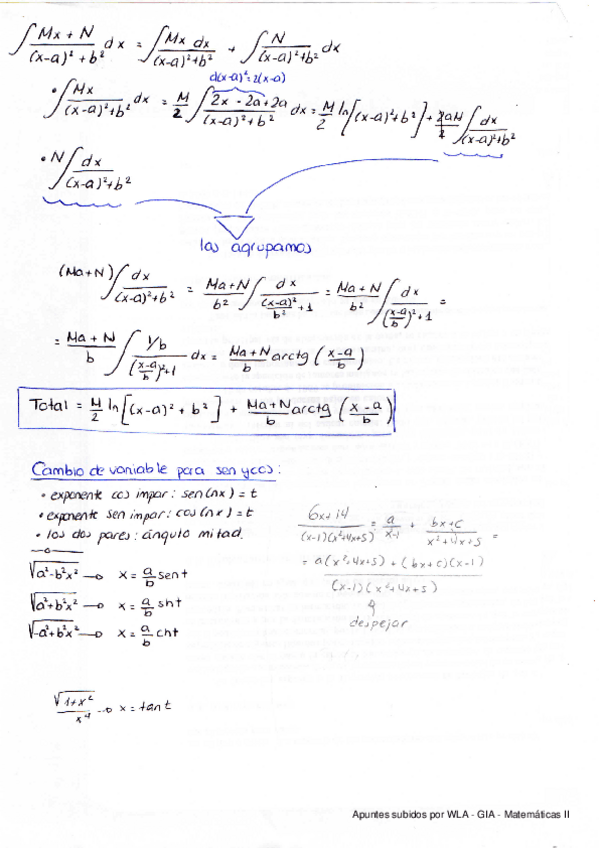 ∫ (Mx + N)/((x-a)² + b²) dx = ∫ (Mx dx)/((x-a)²+b²) + ∫ N/((x-a)²+b²) dx
d(x-a)²=2(x-a)
• ∫ Mx/((x-a)²+b²) dx = M/2 ∫ (2x - 2a + 2a)/((x-a)²+b²) dx = M/2 ln[(x-a)²+b²] + 2aM/2 ∫ dx/((x-a)²+b²)
• N ∫ dx/((x-a)²+b²)
las agrupamos
(Ma+N) ∫ dx/((x-a)²+b²) = (Ma+N)/b² ∫ dx/((x-a)²/b² + 1) = (Ma+N)/b² ∫ dx/(((x-a)/b)² + 1) =
= (Ma+N)/b ∫ (1/b)/(((x-a)/b)²+1) dx = (Ma+N)/b arctg ((x-a)/b)
Total = M/2 ln[(x-a)² + b²] + (Ma+N)/b arctg ((x-a)/b)
Cambio de variable para sen y cos:
• exponente cos impar: sen(nx) = t
• exponente sen impar: cos(nx) = t
• los dos pares: ángulo mitad.
√(a²-b²x²) → x = a/b sen t
√(a²+b²x²) → x = a/b sht
√(-a²+b²x²) → x = a/b cht
(6x+14)/((x-1)(x²+4x+5)) = a/(x-1) + (bx+c)/(x²+4x+5) =
= (a(x²+4x+5) + (bx+c)(x-1))/((x-1)(x²+4x+5))
despejar
√(1+x²)/x⁴ → x = tan t
Apuntes subidos por WLA - GIA - Matemáticas II